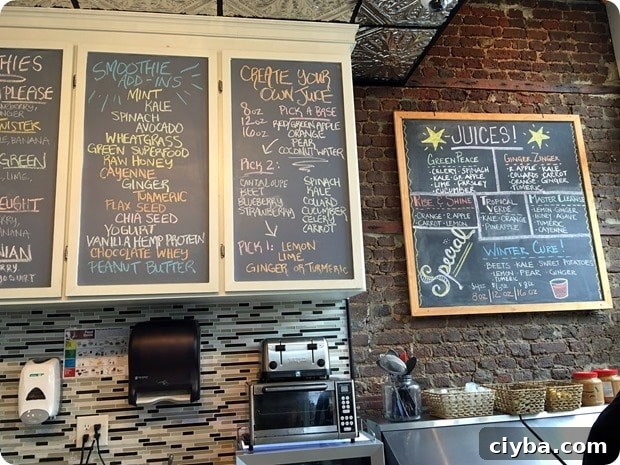 HIES
PLEASE
BANANA
GREEN
SMOOTHIE
ADD-INS
MINT
KALE
SPINACH
AVOCADO
WHEATGRASS
GREEN SUPERFOOD
RAW HONEY
CAYENNE
GINGER
TURMERIC
FLAX SEED
CHIA SEED
YOGURT
VANILLA HEMP PROTEIN
CHOCOLATE WHEY
PEANUT BUTTER
CREATE YOUR
OWN JUICE
8oz PICK A BASE
12oz RED/GREEN APPLE
16oz ORANGE
PEAR
COCONUT WATER
PICK 2:
CANTALOUPE SPINACH
BEET KALE
BLUEBERRY COLLARD
STRAWBERRY CUCUMBER
CELERY
CARROT
PICK 1: LEMON
LIME
GINGER OR TURMERIC
JUICES!
GREEN PEACE
CELERY SPINACH
KALE GR. APPLE
LIME PARSLEY
CUCUMBER
GINGER ZINGER
R APPLE KALE
COLLARDS CARROT
ORANGE GINGER
TURMERIC
RISE & SHINE
ORANGE R APPLE
CARROT LEMON
TROPICAL
VERDE
KALE ORANGE
PINEAPPLE
MASTER CLEANSE
LEMON GINGER
HONEY AGAVE
TURMERIC
CAYENNE
Special
WINTER CURE!
BEETS KALE SWEET POTATOES
LEMON PEAR GINGER
TURMERIC
8oz 12oz 16oz
ciyba.com